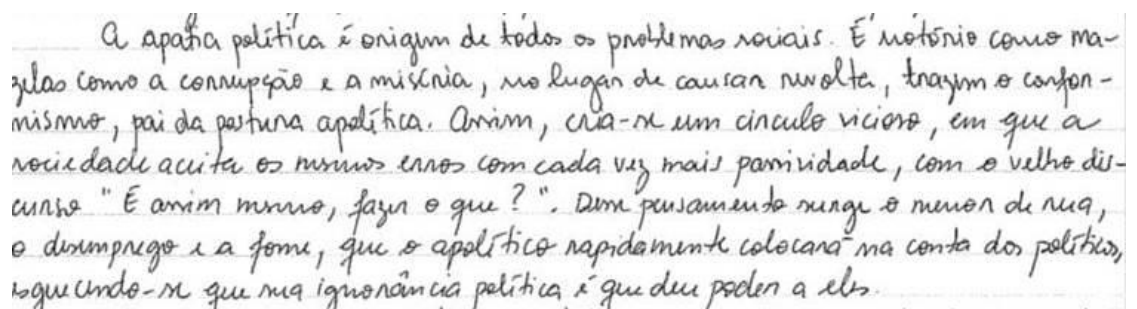 A apatia política é origem de todos os problemas sociais. É notório como ma-
zelas como a corrupção e a miséria, no lugar de causar revolta, trazem o confor-
mismo, pai da postura apolítica. Assim, cria-se um círculo vicioso, em que a
sociedade aceita os mesmos erros com cada vez mais passividade, com o velho dis-
curso "É assim mesmo, fazer o que?". Desse pensamento surge o menor de rua,
o desemprego e a fome, que o apolítico rapidamente colocará na conta dos políticos,
esquecendo-se que sua ignorância política é que deu poder a eles.